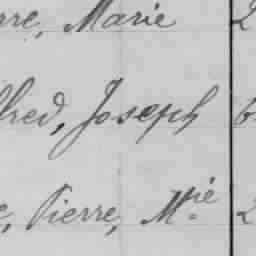 rre, Marie 2
lfred, Joseph 6
e, Pierre, Mie 2